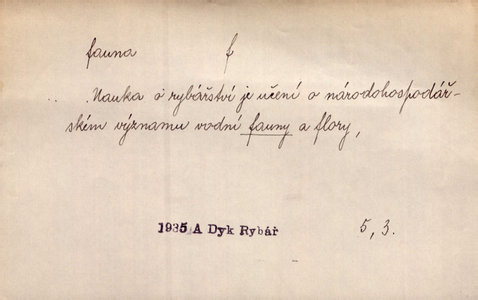 fauna f
.. Nauka o rybářství je učení o národohospodář-
ském významu vodní fauny a flory,
1935 A Dyk Rybář 5,3.